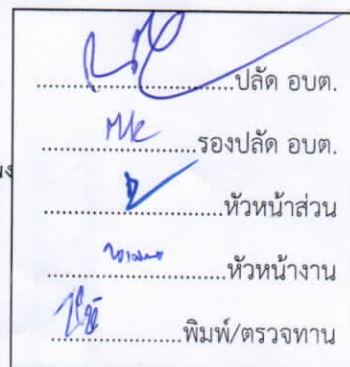 ....................ปลัด อบต.
....................รองปลัด อบต.
....................หัวหน้าส่วน
....................หัวหน้างาน
....................พิมพ์/ตรวจทาน